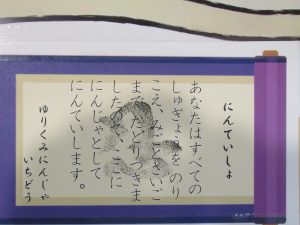 にんていしょ
あなたはすべての
しゅぎょうを のり
こえ、みごとさいご
までたどりつきま
したので、ここに
にんじゃとして
にんていします。
ゆりくみにんじゃ
いちどう